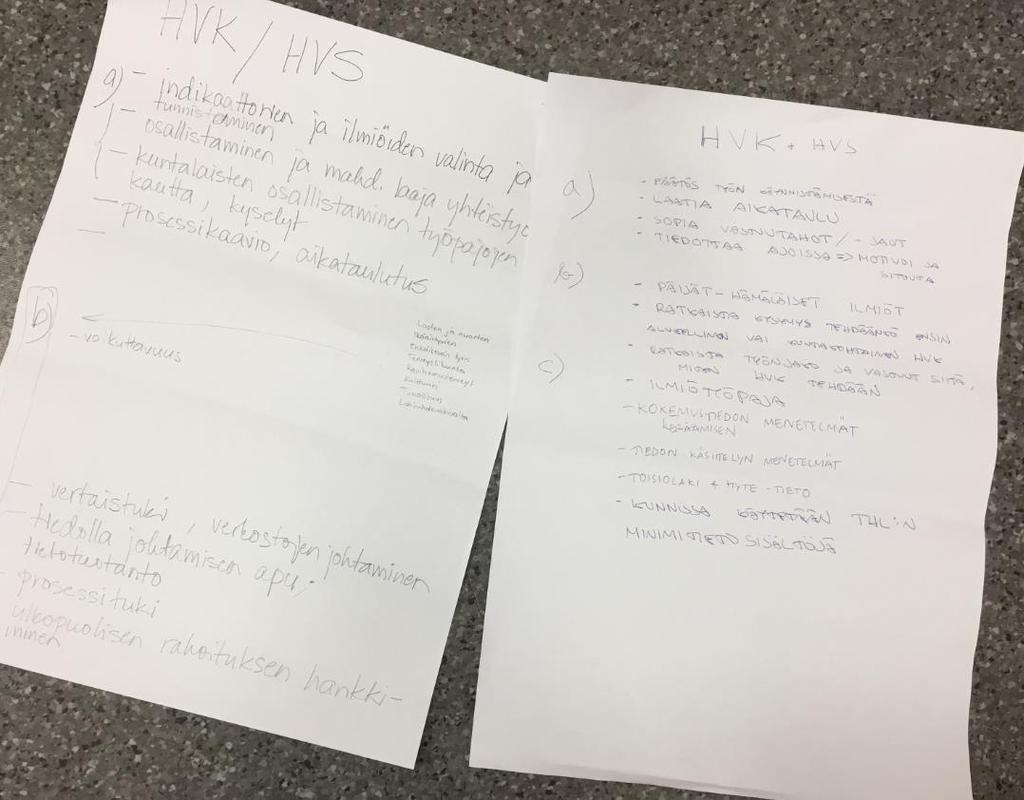 HVK / HVS
a) - indikaattorien ja ilmiöiden valinta ja
tunnistaminen
- osallistaminen ja mahd. laaja yhteistyö
- kuntalaisten osallistaminen työpajojen
kautta, kyselyt
- prosessikaavio, aikataulutus
-
b)
- vaikuttavuus
Lasten ja nuorten
Ikääntyvien
Ehkäisevän työn
Kulttuuri
Turvallisuus
- vertaistuki, verkostojen johtaminen
- tiedolla johtamisen apu;
tietotuotanto
- prosessituki
ulkopuolisen rahoituksen hankki-
minen
HVK + HVS
a)
- PÄÄTÖS TYÖN KÄYNNISTÄMISESTÄ
- LAATIA AIKATAULU
- SOPIA VASTUUTAHOT / -JAOT
- TIEDOTTAA AJOISSA => MOTIVOI JA
SITOUTA
b)
- PÄIJÄT-HÄMÄLÄISET ILMIÖT
- RATKAISTA KYSYMYS TEHDÄÄNKÖ ENSIN
ALUEELLINEN VAI KUNTAKOHTAINEN HVK
- RATKAISTA TYÖNJAKO JA VASTUUT SIITÄ,
MITEN HVK TEHDÄÄN
c)
- ILMIÖTYÖPAJA
- KOKEMUSTIEDON MENETELMÄT
KERÄÄMISEN
- TIEDON KÄSITTELYN MENETELMÄT
- TOISIOLAKI + HYTE-TIETO
- KUNNISSA KÄYTETÄÄN THL:N
MINIMITIETOSISÄLTÖJÄ